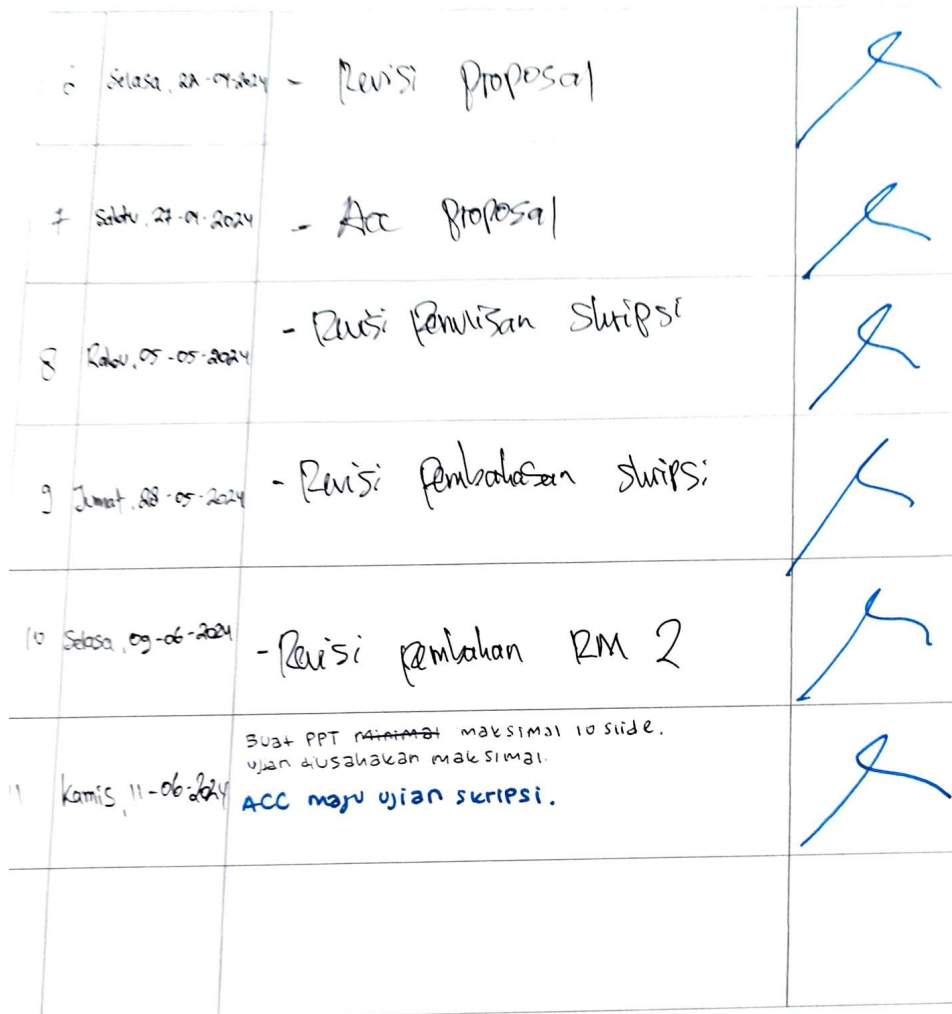 6 Selasa, 22-04-2024 - Revisi Proposal
7 Sabtu, 27-04-2024 - Acc Proposal
8 Rabu, 05-05-2024 - Revisi Penulisan Skripsi
9 Jumat, 28-05-2024 - Revisi Pembahasan skripsi
10 Selasa, 09-06-2024 - Revisi pembahan RM 2
Buat PPT minimal maksimal 10 slide.
ujian diusahakan maksimal.
11 Kamis, 11-06-2024 ACC maju ujian skripsi.